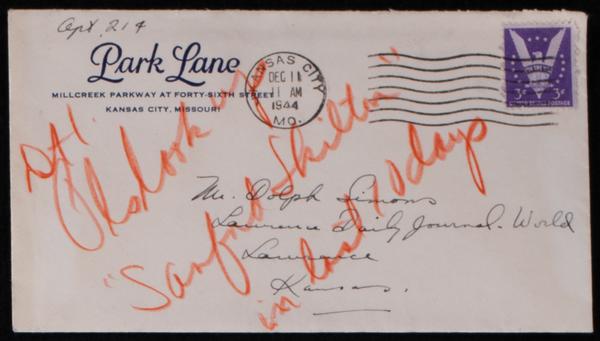 Apt. 214
Park Lane
MILLCREEK PARKWAY AT FORTY-SIXTH STREET
KANSAS CITY, MISSOURI
KANSAS CITY
DEC 11
11 AM
1944
MO.
3¢ 3¢
Pls look up
"Sanford Shilton"
in last 10 days
Mr. Dolph Simons
Lawrence Daily Journal-World
Lawrence
Kansas.